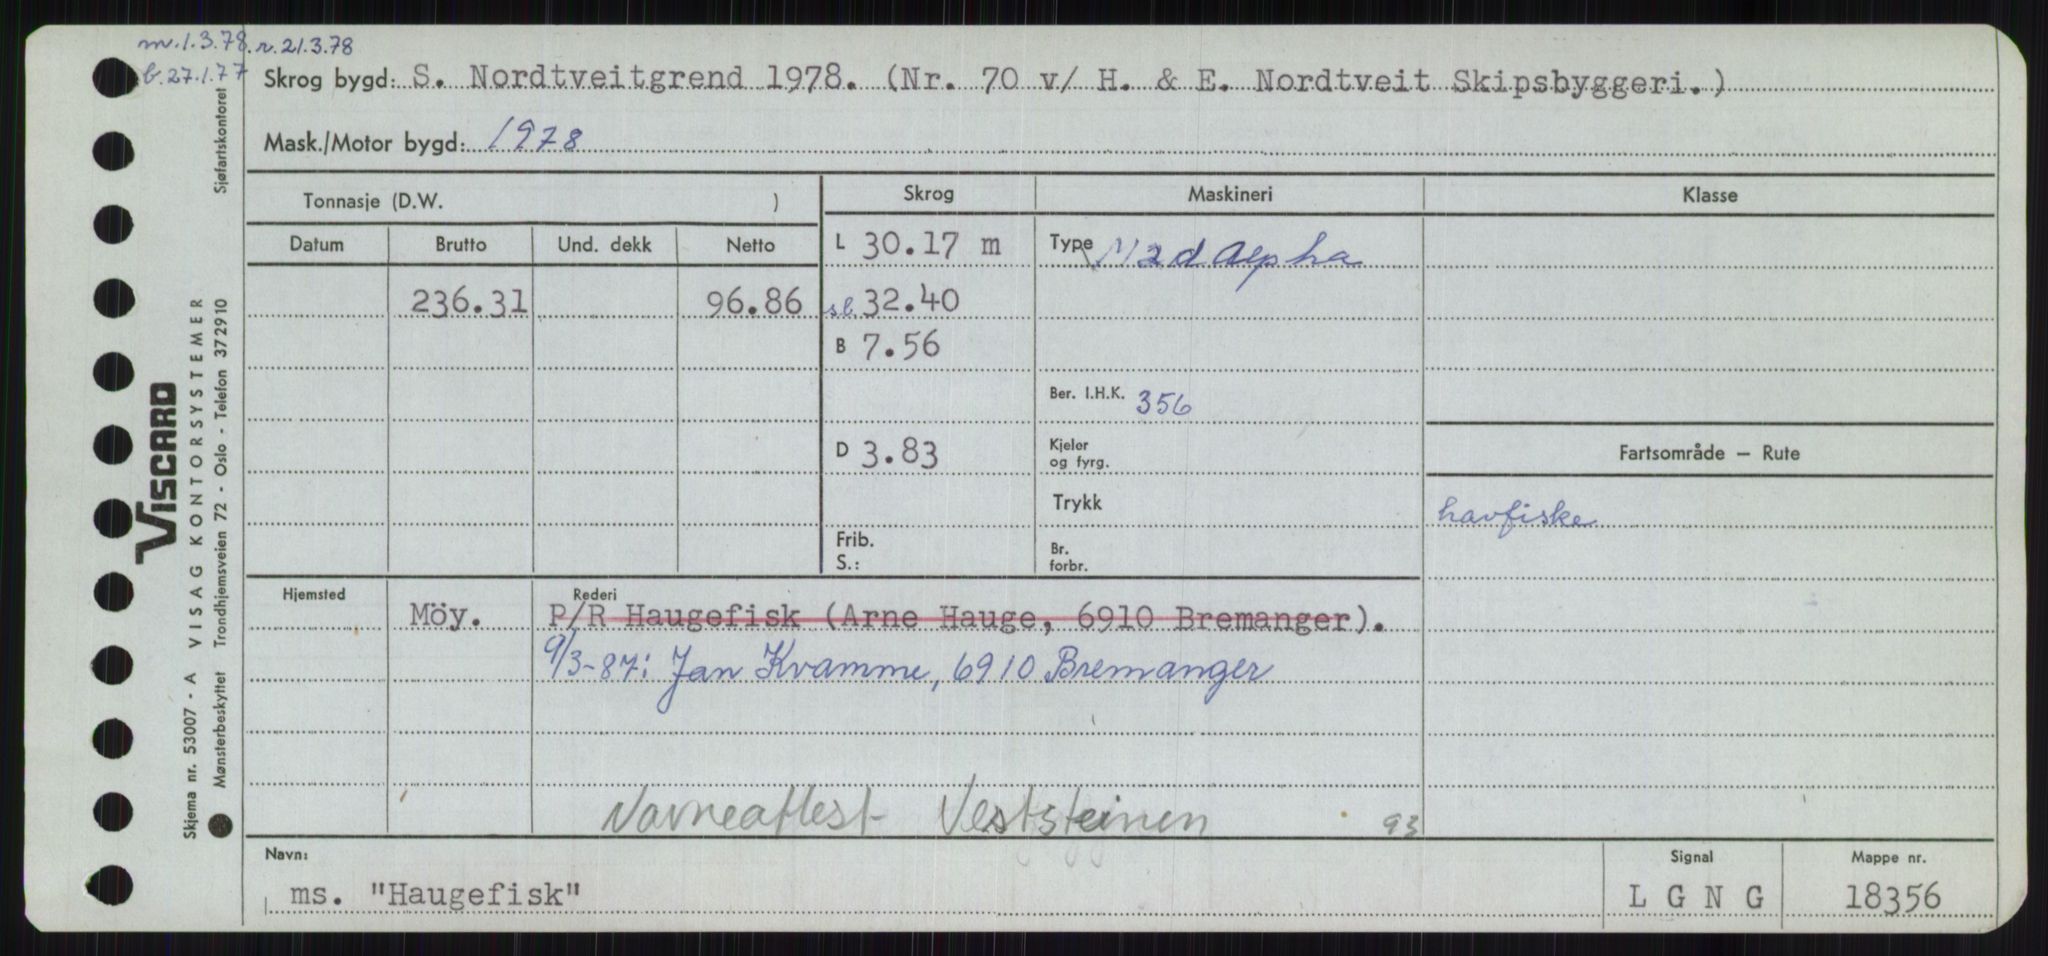 m.1.3.78. r.21.3.78
b.27.1.77
Skrog bygd: S. Nordtveitgrend 1978. (Nr. 70 v/ H. & E. Nordtveit Skipsbyggeri.)
Mask./Motor bygd: 1978
Tonnasje (D.W. )
Skrog
Maskineri
Klasse
Datum
Brutto
Und. dekk
Netto
L 30.17 m
Type
Alpha
236.31
96.86
sl. 32.40
B 7.56
Ber. I.H.K. 356
D 3.83
Kjeler
og fyrg.
Fartsområde — Rute
Trykk
havfiske
Frib.
S.:
Br.
forbr.
Hjemsted
Rederi
Möy.
P/R Haugefisk (Arne Hauge, 6910 Bremanger).
9/3-87: Jan Kvamme, 6910 Bremanger
Navneattest Veststeinen
93
Navn:
ms. "Haugefisk"
Signal
L G N G
Mappe nr.
18356
VISCARD
Skjema nr. 53007 - A VISAG KONTORSYSTEMER
Mønsterbeskyttet Trondhjemsveien 72 - Oslo - Telefon 372910
Sjøfartskontoret